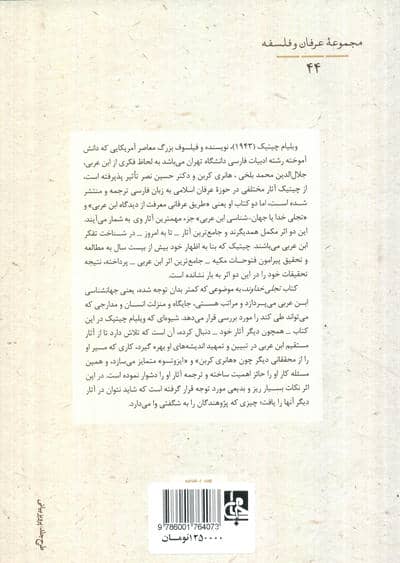 مجموعهٔ عرفان و فلسفه
۴۴
ویلیام چیتیک (۱۹۴۳)، نویسنده و فیلسوف بزرگ معاصر آمریکایی که دانش
آموخته رشته ادبیات فارسی دانشگاه تهران می‌باشد به لحاظ فکری از ابن عربی،
جلال‌الدین محمد بلخی ـ هانری کربن و دکتر حسین نصر تأثیر پذیرفته است.
از چیتیک آثار مختلفی در حوزهٔ عرفان اسلامی به زبان فارسی ترجمه و منتشر
شده است، اما دو کتاب او یعنی «طریق عرفانی معرفت از دیدگاه ابن عربی» و
«تجلی خدا یا جهان‌شناسی ابن عربی» جزء مهمترین آثار وی به شمار می‌آیند.
این دو اثر مکمل همدیگرند و جامع‌ترین آثار ــ تا به امروز ــ در شناخت تفکر
ابن عربی می‌باشند. چیتیک که بنا به اظهار خود بیش از بیست سال به مطالعه
و تحقیق پیرامون فتوحات مکیه ـ جامع‌ترین اثر ابن عربی ـ پرداخته، نتیجه
تحقیقات خود را در این دو اثر به بار نشانده است.
کتاب تجلی خداوند، به موضوعی که کمتر بدان توجه شده، یعنی جهانشناسی
ابن عربی می‌پردازد و مراتب هستی، جایگاه و منزلت انسان و مدارجی که
می‌تواند طی کند را مورد بررسی قرار می‌دهد. شیوه‌ای که ویلیام چیتیک در این
کتاب ــ همچون دیگر آثار خود ــ دنبال کرده، آن است که تلاش دارد تا از آثار
مستقیم ابن عربی در تبیین و تمهید اندیشه‌های او بهره گیرد، کاری که مسیر او
را از محققانی دیگر چون «هانری کربن» و «ایزوتسو» متمایز می‌سازد، و همین
مسئله کار او را حائز اهمیت ساخته و ترجمه آثار او را دشوار نموده است. در این
اثر نکات بسیار ریز و بدیعی مورد توجه قرار گرفته است که شاید نتوان در آثار
دیگر آنها را یافت؛ چیزی که پژوهندگان را به شگفتی وا می‌دارد.
جامی
9 786001 764073
۱۳۵۰۰۰۰تومان